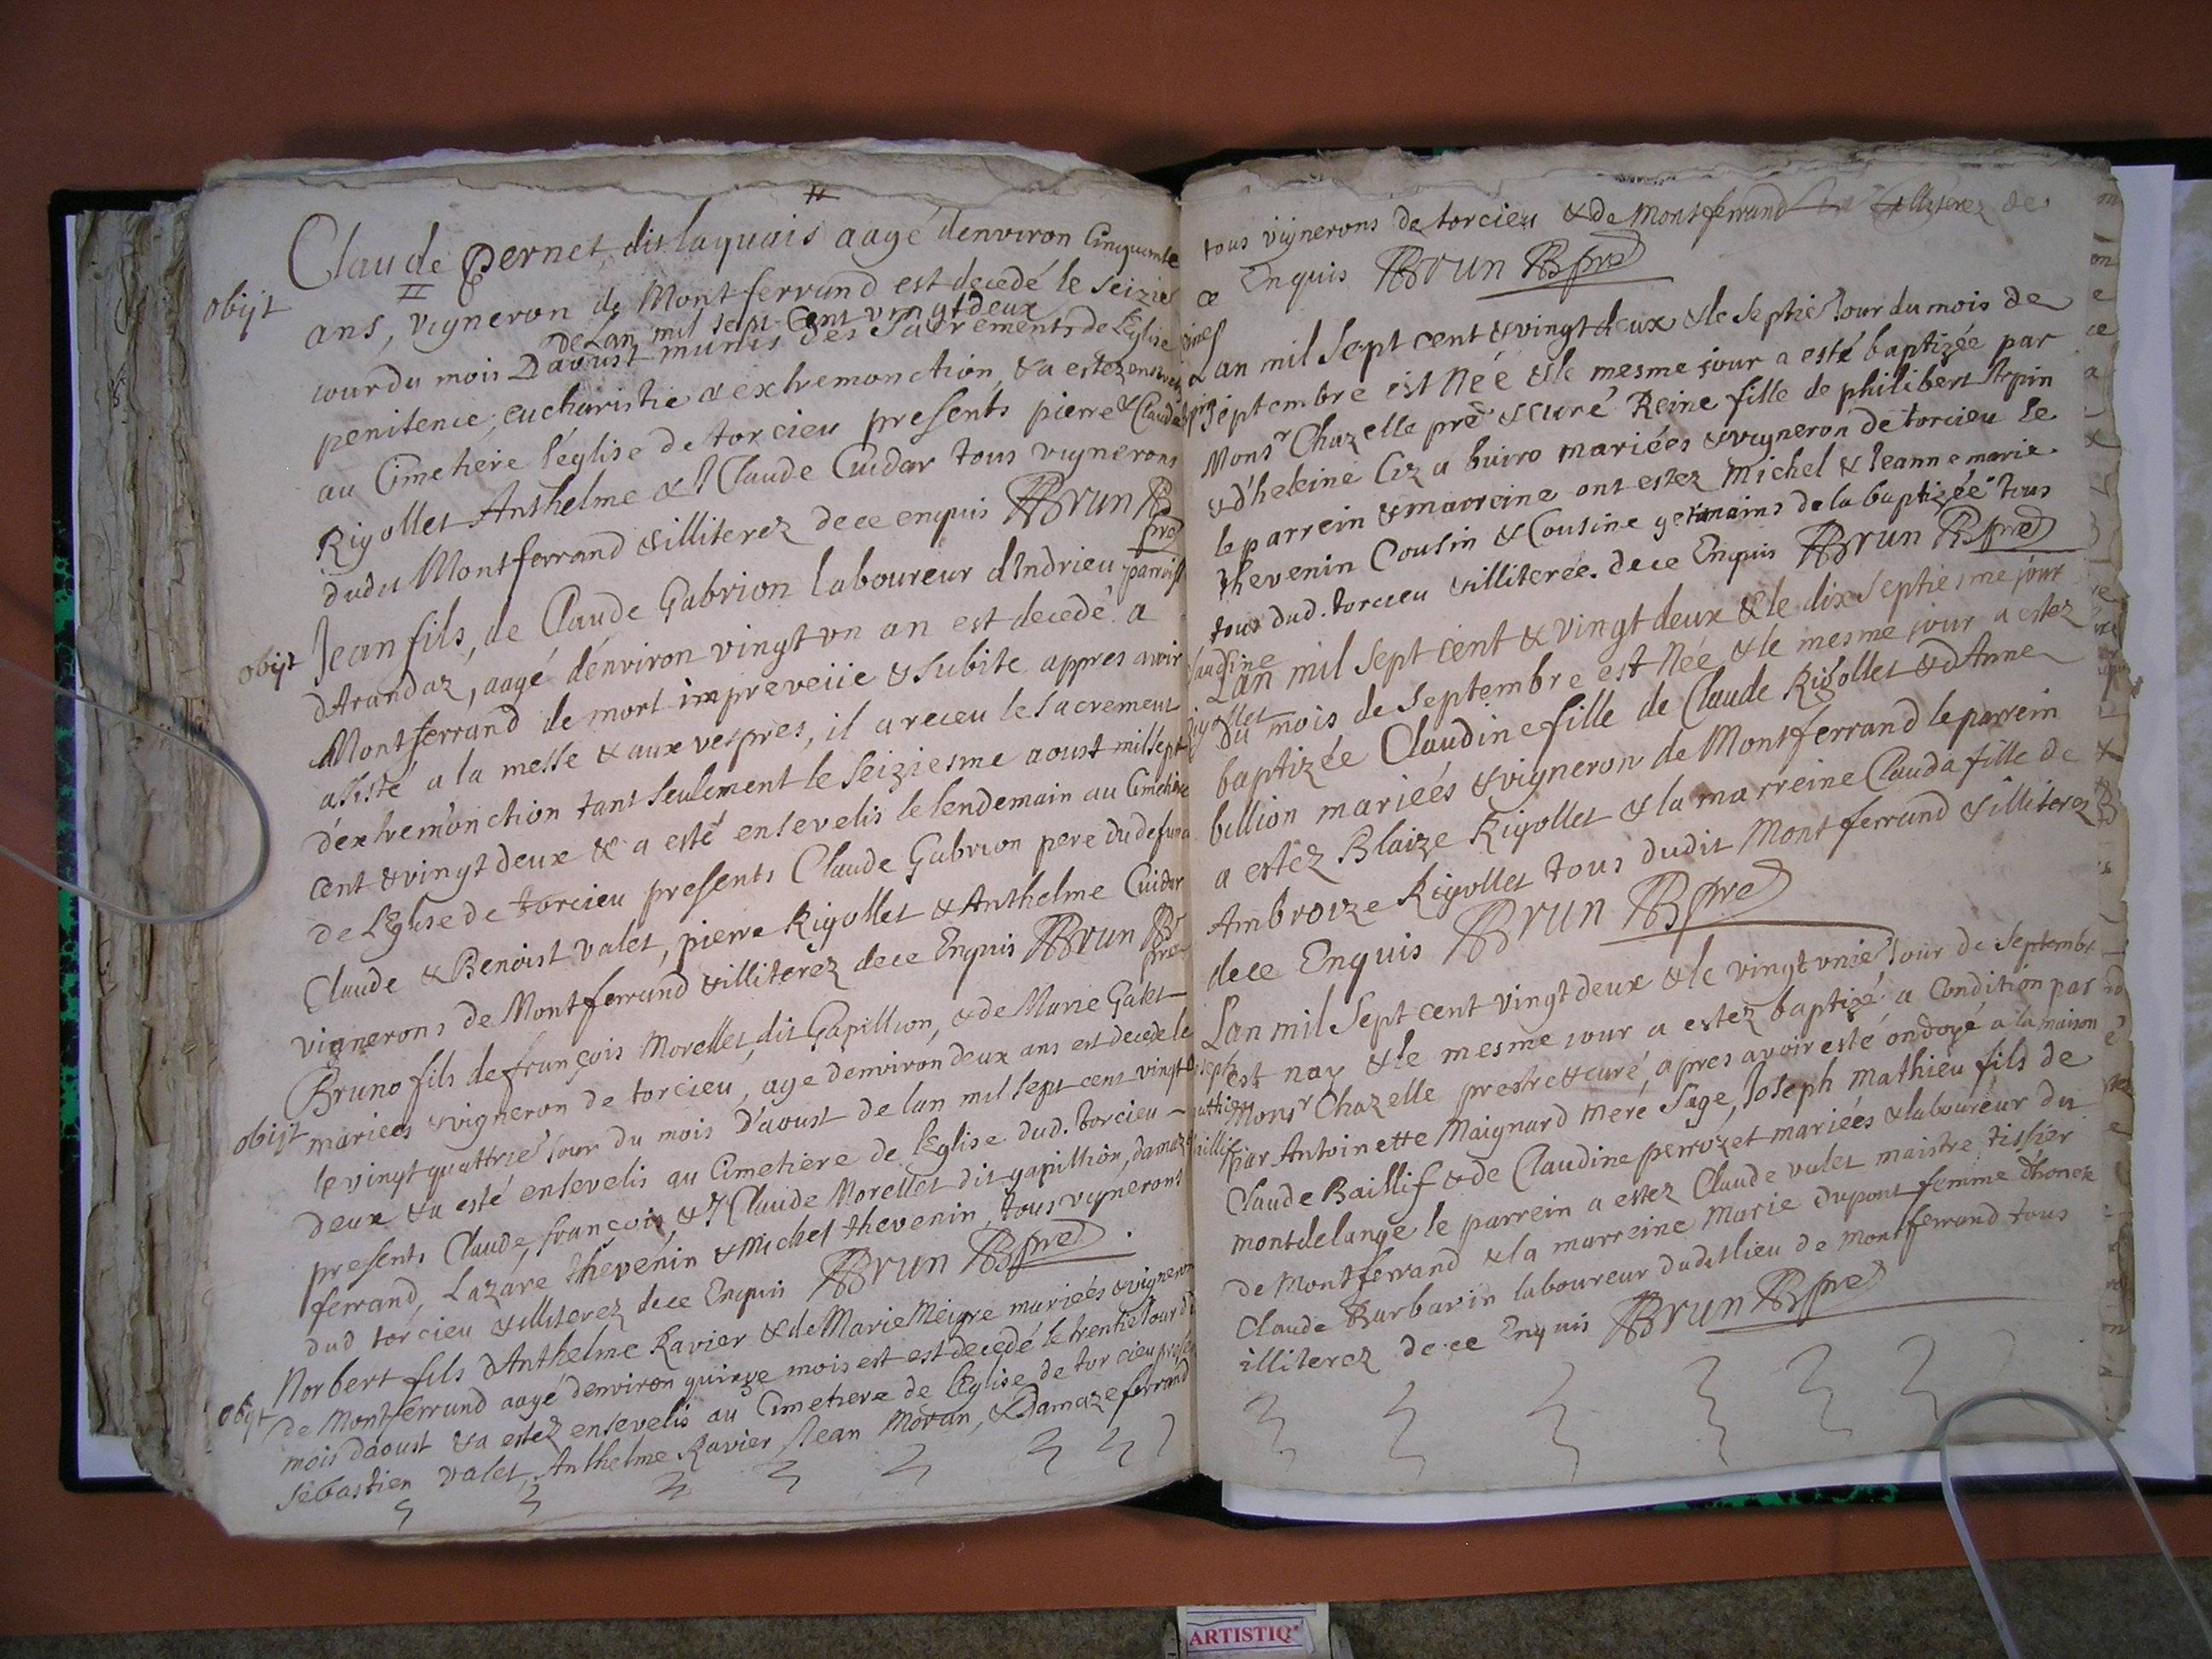 Claude Pernet dit laquais aagé d'environ Cinquante
obijt
ans, vigneron de Montferrand est decedé le seizie
de Lan mil sept Cent vingt deux
jour du mois Daoust munis des Sacrements de L'Eglise
penitence, eucharistie & extremonction, & a estez
au Cimetiere l'église de torcieu presents pierre & Claude
Rigollet Anthelme & Claude Cuidar tous vignerons
dudit Montferrand & illiterez de ce enquis Brun
pre
Jean fils, de Claude Gabrion laboureur d'Indrieu parroisse
obijt
d'Arandaz, aagé d'environ vingt un an est decedé a
Montferrand de mort impreveüe & subite appres avoir
asisté a la messe & aux vespres, il a receu le sacrement
d'extremonction tant seulement le seiziesme aoust mil sept
cent & vingt deux & a esté ensevelis le lendemain au Cimetiere
de L'Eglise de torcieu presents Claude Gabrion pere du defunct
Claude & Benoist valet, pierre Rigollet & Anthelme Cuidar
vignerons de Montferrand & illiterez de ce Enquis Brun
pre
Bruno fils de françois Morellet dit Gapillion, & de Marie Galet
obijt
mariees & vigneron de torcieu, agé d'environ deux ans est decedé le
le vingt quattrie jour du mois D'aoust de lan mil sept cent vingt
deux & a esté ensevelis au Cimetiere de l'Eglise dud. torcieu
presents Claude, françois, & Claude Morellet dit gapillion, damaz
ferrand, Lazare thevenin & Michel thevenin, tous vignerons
dud torcieu & illiterez de ce Enquis Brun pre
Norbert fils d'Anthelme Ravier & de Marie Meigre mariées & vigneron
obijt
de Montferrand aagé d'environ quinze mois est est decedé le trentie jour du
mois daoust & a estez ensevelis au Cimetiere de l'Eglise de torcieu
Sebastien valet, Anthelme Ravier Jean Moran, & Damaze ferrand
tous vignerons de torcieu & de Montferrand illiterez de
ce Enquis Brun pre
Lan mil Sept cent & vingt deux & le septie jour du mois de
septembre est Née & le mesme jour a esté baptizée par
Monsr Chazelle pre & curé Reine fille de philibert Arpin
& d'heleine Coz a buiro mariées & vigneron de torcieu le
le parrein & marreine ont estez Michel & Jeanne marie
thevenin Cousin & Cousine germains de la baptizée tous
tous dud. torcieu & illiterée. de ce Enquis Brun pre
Lan mil Sept cent & vingt deux & le dix septiesme jour
du mois de Septembre est Née & le mesme jour a estez
baptizée Claudine fille de Claude Rigollet & d'Anne
billion mariées & vigneron de Montferrand le parrein
a estez Blaize Rigollet & la marreine Clauda fille de
Ambroize Rigollet tous dudit Montferrand & illiterez
de ce Enquis Brun pre
Lan mil Sept cent vingt deux & le vingt unie jour de septembre
est nay & le mesme jour a estez baptizé a Condition par
Monsr Chazelle prestre & curé, apres avoir esté ondoyé a la maison
par Antoinette Maignard mere Sage, Joseph Mathieu fils de
Claude Baillif & de Claudine perrozet mariées & laboureur du
montdelange le parrein a estez Claude valet maistre tissier
de Montferrand & la marreine Marie dupont femme d'honete
Claude Barbarin laboureur dudit lieu de Montferrand tous
illiterez de ce Enquis Brun pre
ARTISTIQ